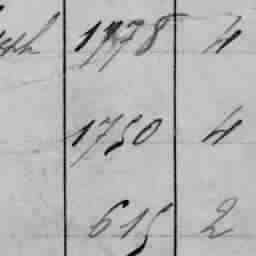 1778 4
1750 4
615 2